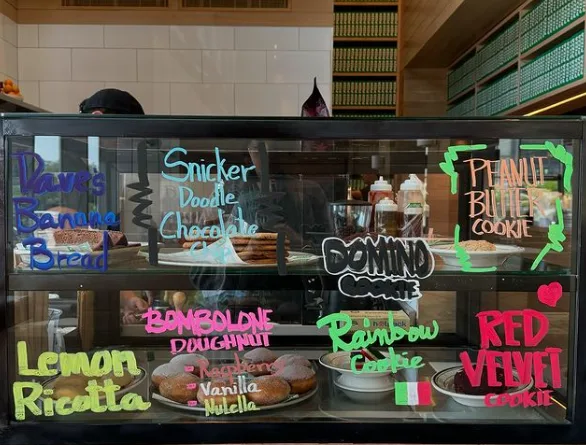 Dave's
Banana
Bread
Snicker
Doodle
Chocolate
Chip
DOMINO
COOKIE
PEANUT
BUTTER
COOKIE
Lemon
Ricotta
BOMBOLONE
DOUGHNUT
Raspberry
Vanilla
Nutella
Rainbow
Cookie
RED
VELVET
COOKIE